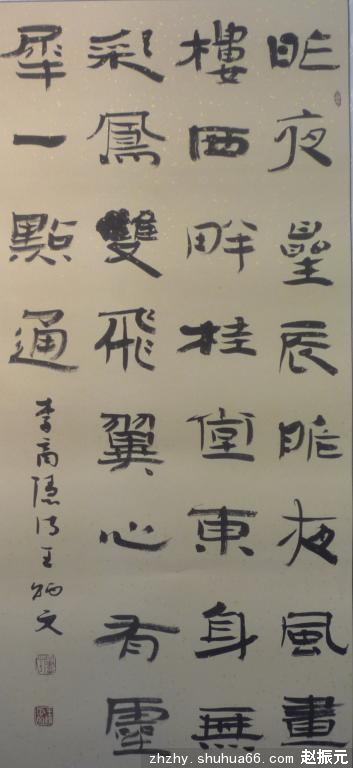 昨夜星辰昨夜風畫
樓西畔桂堂東身無
彩鳳雙飛翼心有靈
犀一點通
李商隱詩王炳文
zhzhy.shuhua66.com/ 赵振元